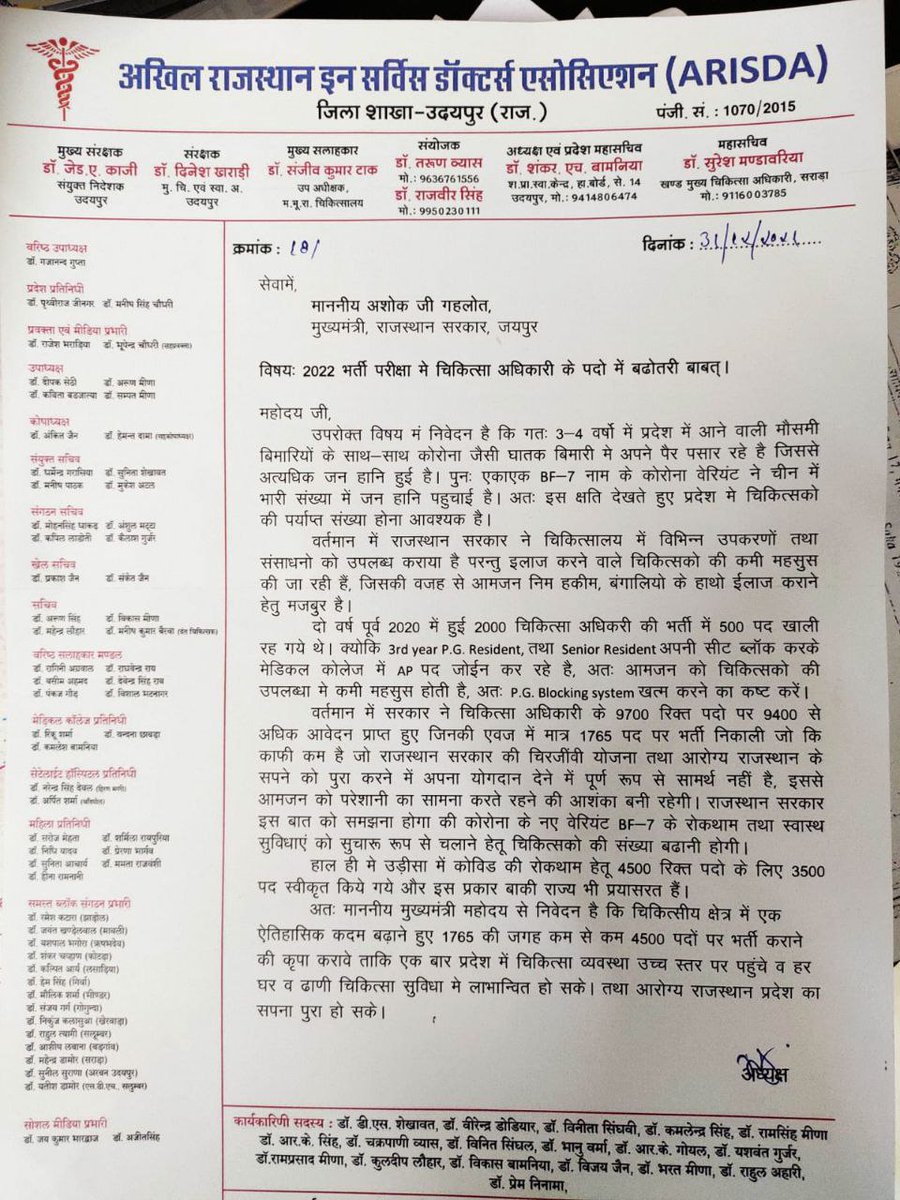 अखिल राजस्थान इन सर्विस डॉक्टर्स एसोसिएशन (ARISDA)
जिला शाखा-उदयपुर (राज.)
पंजी. सं. : 1070/2015
मुख्य संरक्षक
डॉ. जेड.ए. काजी
संयुक्त निदेशक
उदयपुर
संरक्षक
डॉ. दिनेश खराड़ी
मु. चि. एवं स्वा. अ.
उदयपुर
मुख्य सलाहकार
डॉ. संजीव कुमार टाक
उप अधीक्षक,
म.भू.रा. चिकित्सालय
संयोजक
डॉ. तरूण व्यास
मो.: 9636761556
डॉ. राजवीर सिंह
मो.: 9950230111
अध्यक्ष एवं प्रदेश महासचिव
डॉ. शंकर. एच. बामनिया
श.प्रा.स्वा.केन्द्र, हा.बोर्ड, से. 14
उदयपुर, मो.: 9414806474
महासचिव
डॉ. सुरेश मण्डावरिया
खण्ड मुख्य चिकित्सा अधिकारी, सराड़ा
मो.: 9116003785
वरिष्ठ उपाध्यक्ष
डॉ. गजानन्द गुप्ता
प्रदेश प्रतिनिधी
डॉ. पृथ्वीराज जीनगर डॉ. मनीष सिंह चौधरी
प्रवक्ता एवं मीडिया प्रभारी
डॉ. राजेश भराड़िया डॉ. भूपेन्द्र चौधरी (सहप्रवक्ता)
उपाध्यक्ष
डॉ. दीपक सेठी डॉ. अरूण मीणा
डॉ. कविता बड़जात्या डॉ. सम्पत मीणा
कोषाध्यक्ष
डॉ. अंकित जैन डॉ. हेमन्त दामा (सहकोषाध्यक्ष)
संयुक्त सचिव
डॉ. धर्मेन्द्र गरासिया डॉ. सुनिता शेखावत
डॉ. मनीष पाठक डॉ. मुकेश अटल
संगठन सचिव
डॉ. मोहनसिंह धाकड़ डॉ. अंशुल मट्ठा
डॉ. कपिल लाडोती डॉ. कैलाश गुर्जर
खेल सचिव
डॉ. प्रकाश जैन डॉ. संकेत जैन
सचिव
डॉ. अरूण सिंह डॉ. विकास मीणा
डॉ. महेन्द्र लौहार डॉ. मनीष कुमार बैरवा (दंत चिकित्सक)
वरिष्ठ सलाहकार मण्डल
डॉ. रागिनी अग्रवाल डॉ. राघवेन्द्र राय
डॉ. वसीम अहमद डॉ. देवेन्द्र सिंह राव
डॉ. पंकज गौड़ डॉ. विशाल भटनागर
मेडिकल कॉलेज प्रतिनिधी
डॉ. रिंकू शर्मा डॉ. वन्दना छाबड़ा
डॉ. कमलेश बामनिया
सेटेलाईट हॉस्पिटल प्रतिनिधी
डॉ. नरेन्द्र सिंह देवल (हिरण मगरी)
डॉ. अर्पित शर्मा
महिला प्रतिनिधी
डॉ. सरोज मेहता डॉ. शर्मिला रायपुरिया
डॉ. निधि यादव डॉ. प्रेरणा भार्गव
डॉ. सुनिता आचार्य डॉ. ममता राजवंशी
डॉ. हीना रामनानी
समस्त ब्लॉक संगठन प्रभारी
डॉ. रमेश कटारा (झाड़ोल)
डॉ. जयंत खण्डेलवाल (मावली)
डॉ. यशपाल भगोरा (ऋषभदेव)
डॉ. शंकर चव्हाण (कोटड़ा)
डॉ. कल्पित आर्य (लसाड़िया)
डॉ. हेम सिंह
डॉ. मौलिक शर्मा (भीण्डर)
डॉ. संजय गर्ग (गोगुन्दा)
डॉ. निकुंज कलासुआ (खेरवाड़ा)
डॉ. राहुल त्यागी (सलूम्बर)
डॉ. आशीष लबाना (बड़गांव)
डॉ. महेन्द्र डामोर (सराड़ा)
डॉ. सुनील सुराणा (अरबन उदयपुर)
डॉ. यतीश डामोर (एस.डी.एच., सलुम्बर)
सोशल मीडिया प्रभारी
डॉ. जय कुमार भारद्वाज डॉ. अजीतसिंह
क्रमांक : 181
दिनांक : 31/12/2022
सेवामें,
माननीय अशोक जी गहलोत,
मुख्यमंत्री, राजस्थान सरकार, जयपुर
विषयः 2022 भर्ती परीक्षा मे चिकित्सा अधिकारी के पदो में बढोतरी बाबत्।
महोदय जी,
उपरोक्त विषय मं निवेदन है कि गतः 3-4 वर्षो में प्रदेश में आने वाली मौसमी
बिमारियों के साथ-साथ कोरोना जैसी घातक बिमारी मे अपने पैर पसार रहे है जिससे
अत्यधिक जन हानि हुई है। पुनः एकाएक BF-7 नाम के कोरोना वेरियंट ने चीन में
भारी संख्या में जन हानि पहुचाई है। अतः इस क्षति देखते हुए प्रदेश मे चिकित्सको
की पर्याप्त संख्या होना आवश्यक है।
वर्तमान में राजस्थान सरकार ने चिकित्सालय में विभिन्न उपकरणों तथा
संसाधनो को उपलब्ध कराया है परन्तु इलाज करने वाले चिकित्सको की कमी महसुस
की जा रही हैं, जिसकी वजह से आमजन निम हकीम, बंगालियो के हाथो ईलाज कराने
हेतु मजबुर है।
दो वर्ष पूर्व 2020 में हुई 2000 चिकित्सा अधिकरी की भर्ती में 500 पद खाली
रह गये थे। क्योकि 3rd year P.G. Resident, तथा Senior Resident अपनी सीट ब्लॉक करके
मेडिकल कोलेज में AP पद जोईन कर रहे है, अतः आमजन को चिकित्सको की
उपलब्धा मे कमी महसुस होती है, अतः P.G. Blocking system खत्म करने का कष्ट करें।
वर्तमान में सरकार ने चिकित्सा अधिकारी के 9700 रिक्त पदो पर 9400 से
अधिक आवेदन प्राप्त हुए जिनकी एवज में मात्र 1765 पद पर भर्ती निकाली जो कि
काफी कम है जो राजस्थान सरकार की चिरजींवी योजना तथा आरोग्य राजस्थान के
सपने को पुरा करने में अपना योगदान देने में पूर्ण रूप से सामर्थ नहीं है, इससे
आमजन को परेशानी का सामना करते रहने की आशंका बनी रहेगी। राजस्थान सरकार
इस बात को समझना होगा की कोरोना के नए वेरियंट BF-7 के रोकथाम तथा स्वास्थ
सुविधाएं को सुचारू रूप से चलाने हेतू चिकित्सको की संख्या बढानी होगी।
हाल ही मे उड़ीसा में कोविड की रोकथाम हेतू 4500 रिक्त पदो के लिए 3500
पद स्वीकृत किये गये और इस प्रकार बाकी राज्य भी प्रयासरत हैं।
अतः माननीय मुख्यमंत्री महोदय से निवेदन है कि चिकित्सीय क्षेत्र में एक
ऐतिहासिक कदम बढ़ाने हुए 1765 की जगह कम से कम 4500 पदों पर भर्ती कराने
की कृपा करावे ताकि एक बार प्रदेश में चिकित्सा व्यवस्था उच्च स्तर पर पहुंचे व हर
घर व ढाणी चिकित्सा सुविधा मे लाभान्वित हो सके। तथा आरोग्य राजस्थान प्रदेश का
सपना पुरा हो सके।
अध्यक्ष
कार्यकारिणी सदस्य : डॉ. डी.एस. शेखावत, डॉ. वीरेन्द्र डोडियार, डॉ. विनीता सिंघवी, डॉ. कमलेन्द्र सिंह, डॉ. रामसिंह मीणा
डॉ. आर.के. सिंह, डॉ. चक्रपाणी व्यास, डॉ. विनित सिंघल, डॉ. भानु वर्मा, डॉ. आर.के. गोयल, डॉ. यशवंत गुर्जर,
डॉ.रामप्रसाद मीणा, डॉ. कुलदीप लौहार, डॉ. विकास बामनिया, डॉ. विजय जैन, डॉ. भरत मीणा, डॉ. राहुल अहारी,
डॉ. प्रेम निनामा,